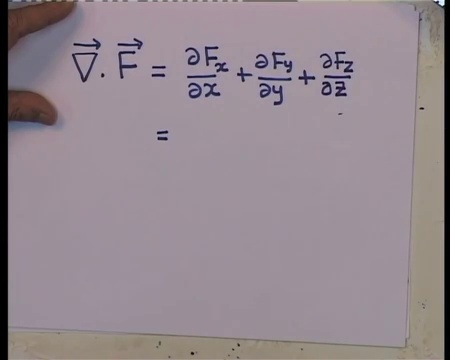 $\vec{\nabla} \cdot \vec{F} = \frac{\partial F_x}{\partial x} + \frac{\partial F_y}{\partial y} + \frac{\partial F_z}{\partial z}$
=